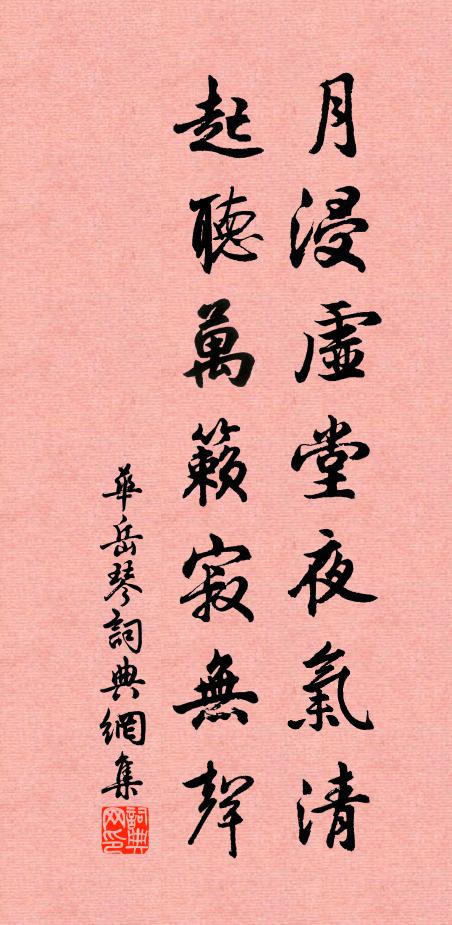 月浸虛堂夜氣清
起聽萬籟寂無聲
華岳琴詞典網集
詞典网印